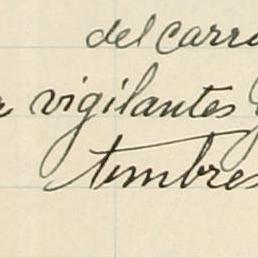 del carr
vigilantes
timbres